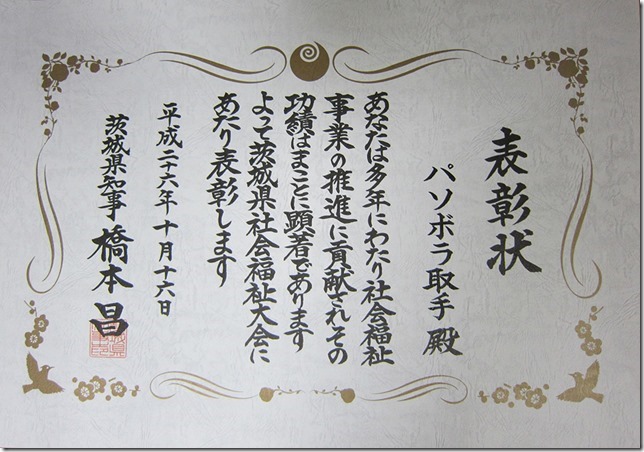 表彰状
パソボラ取手 殿
あなたは多年にわたり社会福祉
事業の推進に貢献されその
功績はまことに顕著であります
よって茨城県社会福祉大会に
あたり表彰します
平成二十六年十月十六日
茨城県知事 橋本 昌